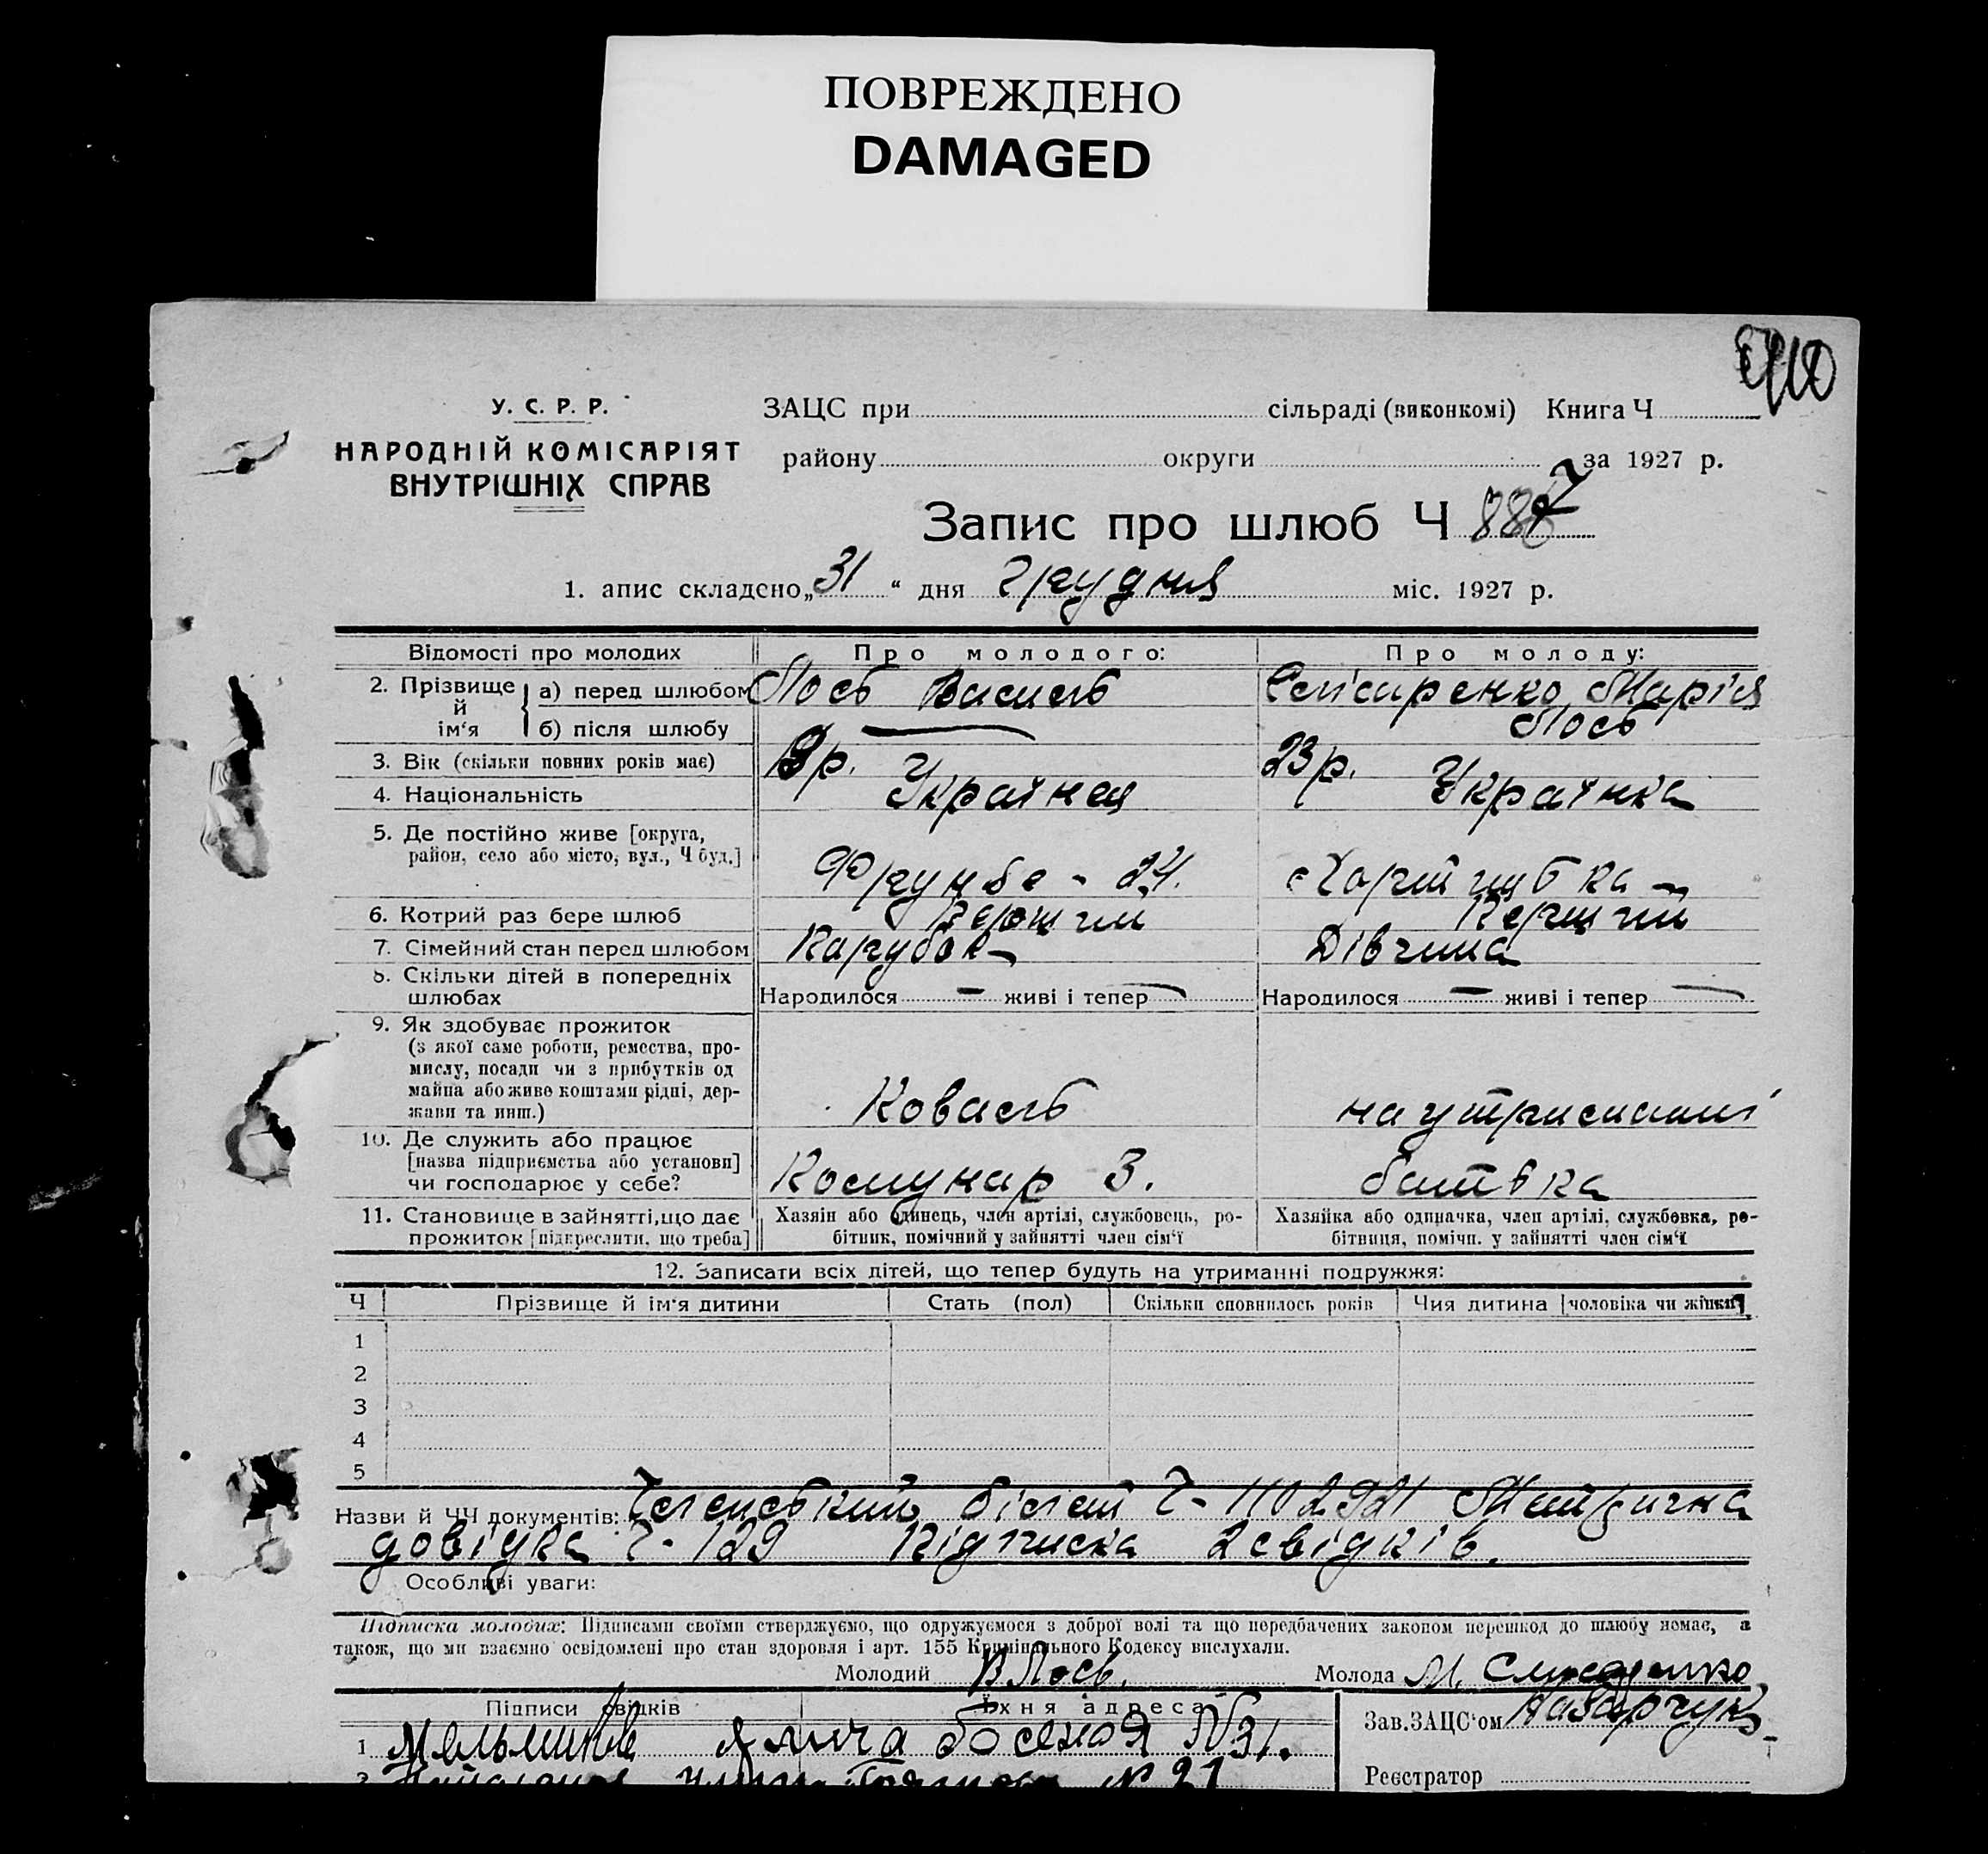 ПОВРЕЖДЕНО
DAMAGED
У. С. Р. Р.
НАРОДНІЙ КОМІСАРІЯТ
ВНУТРІШНІХ СПРАВ
ЗАЦС при сільраді (виконкомі) Книга Ч
району округи за 1927 р.
Запис про шлюб Ч 887
1. апис складено „31“ дня Грудня міс. 1927 р.
Відомості про молодих Про молодого: Про молоду:
2. Прізвище й ім'я а) перед шлюбом Лось Василь Марія
б) після шлюбу Лось
3. Вік (скільки повних років має) р. 23 р.
4. Національність Українец Українка
5. Де постійно живе [округа,
район, село або місто, вул., Ч буд.] Фрунзе - 24.
6. Котрий раз бере шлюб Перший Перший
7. Сімейний стан перед шлюбом Парубок Дівчина
8. Скільки дітей в попередніх
шлюбах Народилося — живі і тепер — Народилося — живі і тепер —
9. Як здобуває прожиток
(з якої саме роботи, ремества, про-
мислу, посади чи з прибутків од
майна або живе коштами рідні, дер-
жави та инш.) Коваль на утриманні
10. Де служить або працює
[назва підприємства або установи]
чи господарює у себе? Комунар З. батька
11. Становище в зайнятті, що дає
прожиток [підкреслити, що треба]
Хазяін або одинець, член артілі, службовець, ро-
бітник, помічний у зайнятті член сім'ї
Хазяйка або одиначка, член артілі, службовка, ро-
бітниця, помічн. у зайнятті член сім'ї
12. Записати всіх дітей, що тепер будуть на утриманні подружжя:
Ч Прізвище й ім'я дитини Стать (пол) Скільки сповнилось років Чия дитина [чоловіка чи жінки]
1
2
3
4
5
Назви й ЧЧ документів: Членський білет Ч- 1102921 Метрична
довідка Ч- 129 Підписка 2 свідків.
Особливі уваги:
Підписка молодих: Підписами своїми стверджуємо, що одружуємося з доброї волі та що передбачених законом перешкод до шлюбу немає, а
також, що ми взаємно освідомлені про стан здоровля і арт. 155 Кримінального Кодексу вислухали.
Молодий В Лось. Молода М.
Підписи свідків Їхня адреса
Зав. ЗАЦС'ом Назарчук
1 №31.
2 № 21
Реєстратор